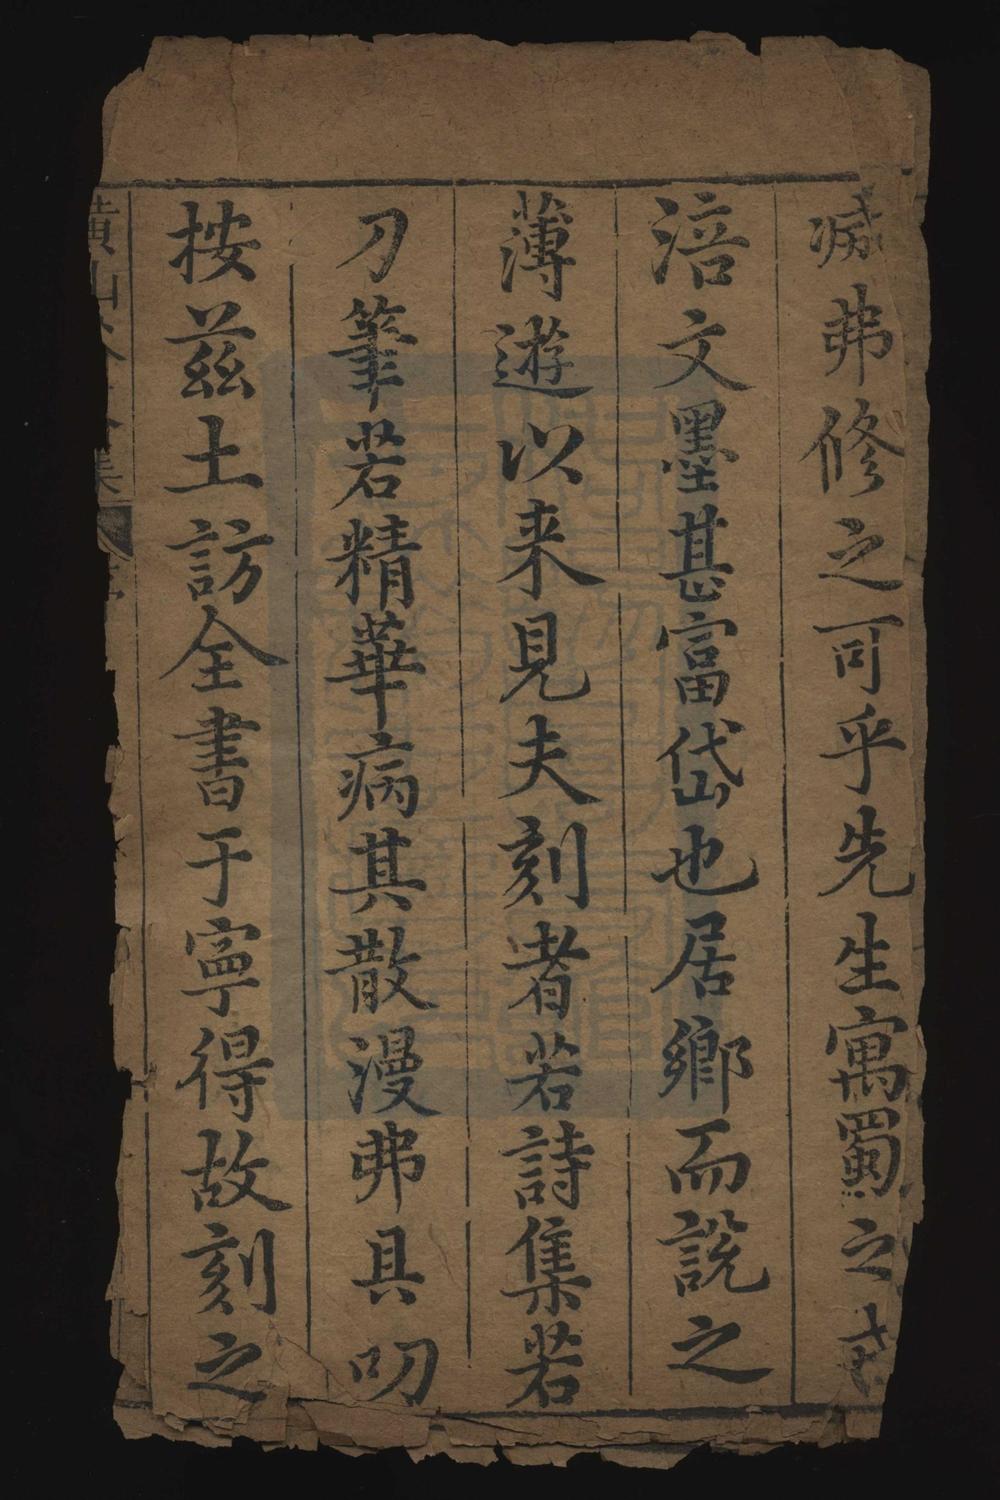 弗修之可乎先生寓蜀之
涪文墨甚富岱也居鄉而說之
薄遊以来見夫刻者若詩集若
刀筆若精華病其散漫弗具叨
按茲土訪全書于寧得故刻之